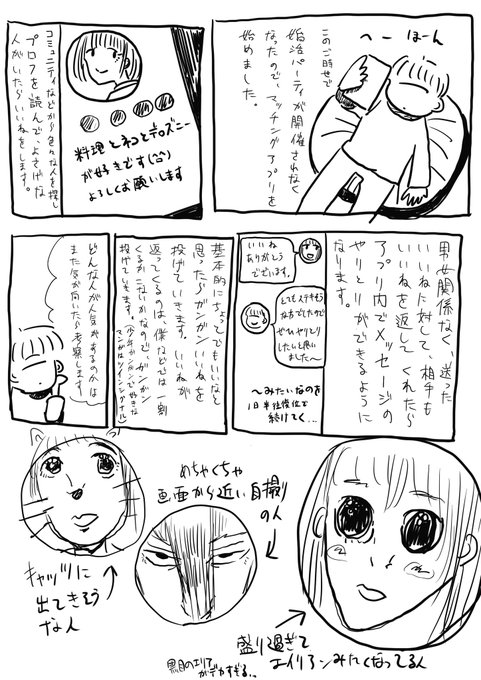 このご時世で
婚活パーティが開催されなく
なったので、マッチングアプリを
始めました。
へーほーん
料理とネコとデズニー
が好きです(^^)
よろしくお願いします
コミュニティなどから色々な人を探し
プロフを読んで、よさげな
人がいたらいいねをします。
男女関係なく、送った
いいねに対して、相手も
いいねを返してくれたら
アプリ内でメッセージの
やりとりができるように
なります。
いいね
ありがとう
ございます。
とてもステキそう
な方でしたので
ぜひやりとり
したいと思い
ました〜
〜みたいなのを
1日半往復位で
続けてく…
基本的にちょっとでもいいなと
思ったらガンガンいいねを
投げていきます。いいねが
返ってくるのは僕などでは一割
くるかこないかなので、ガンガン
投げていきます。
どんな人が人気があるのかは
また気が向いたら考察します
キャッツに
出てきそう
な人
めちゃくちゃ
画面から近い自撮り
の人
盛り過ぎて
エイリアンみたくなってる人
黒目のエリア
がデカすぎる…